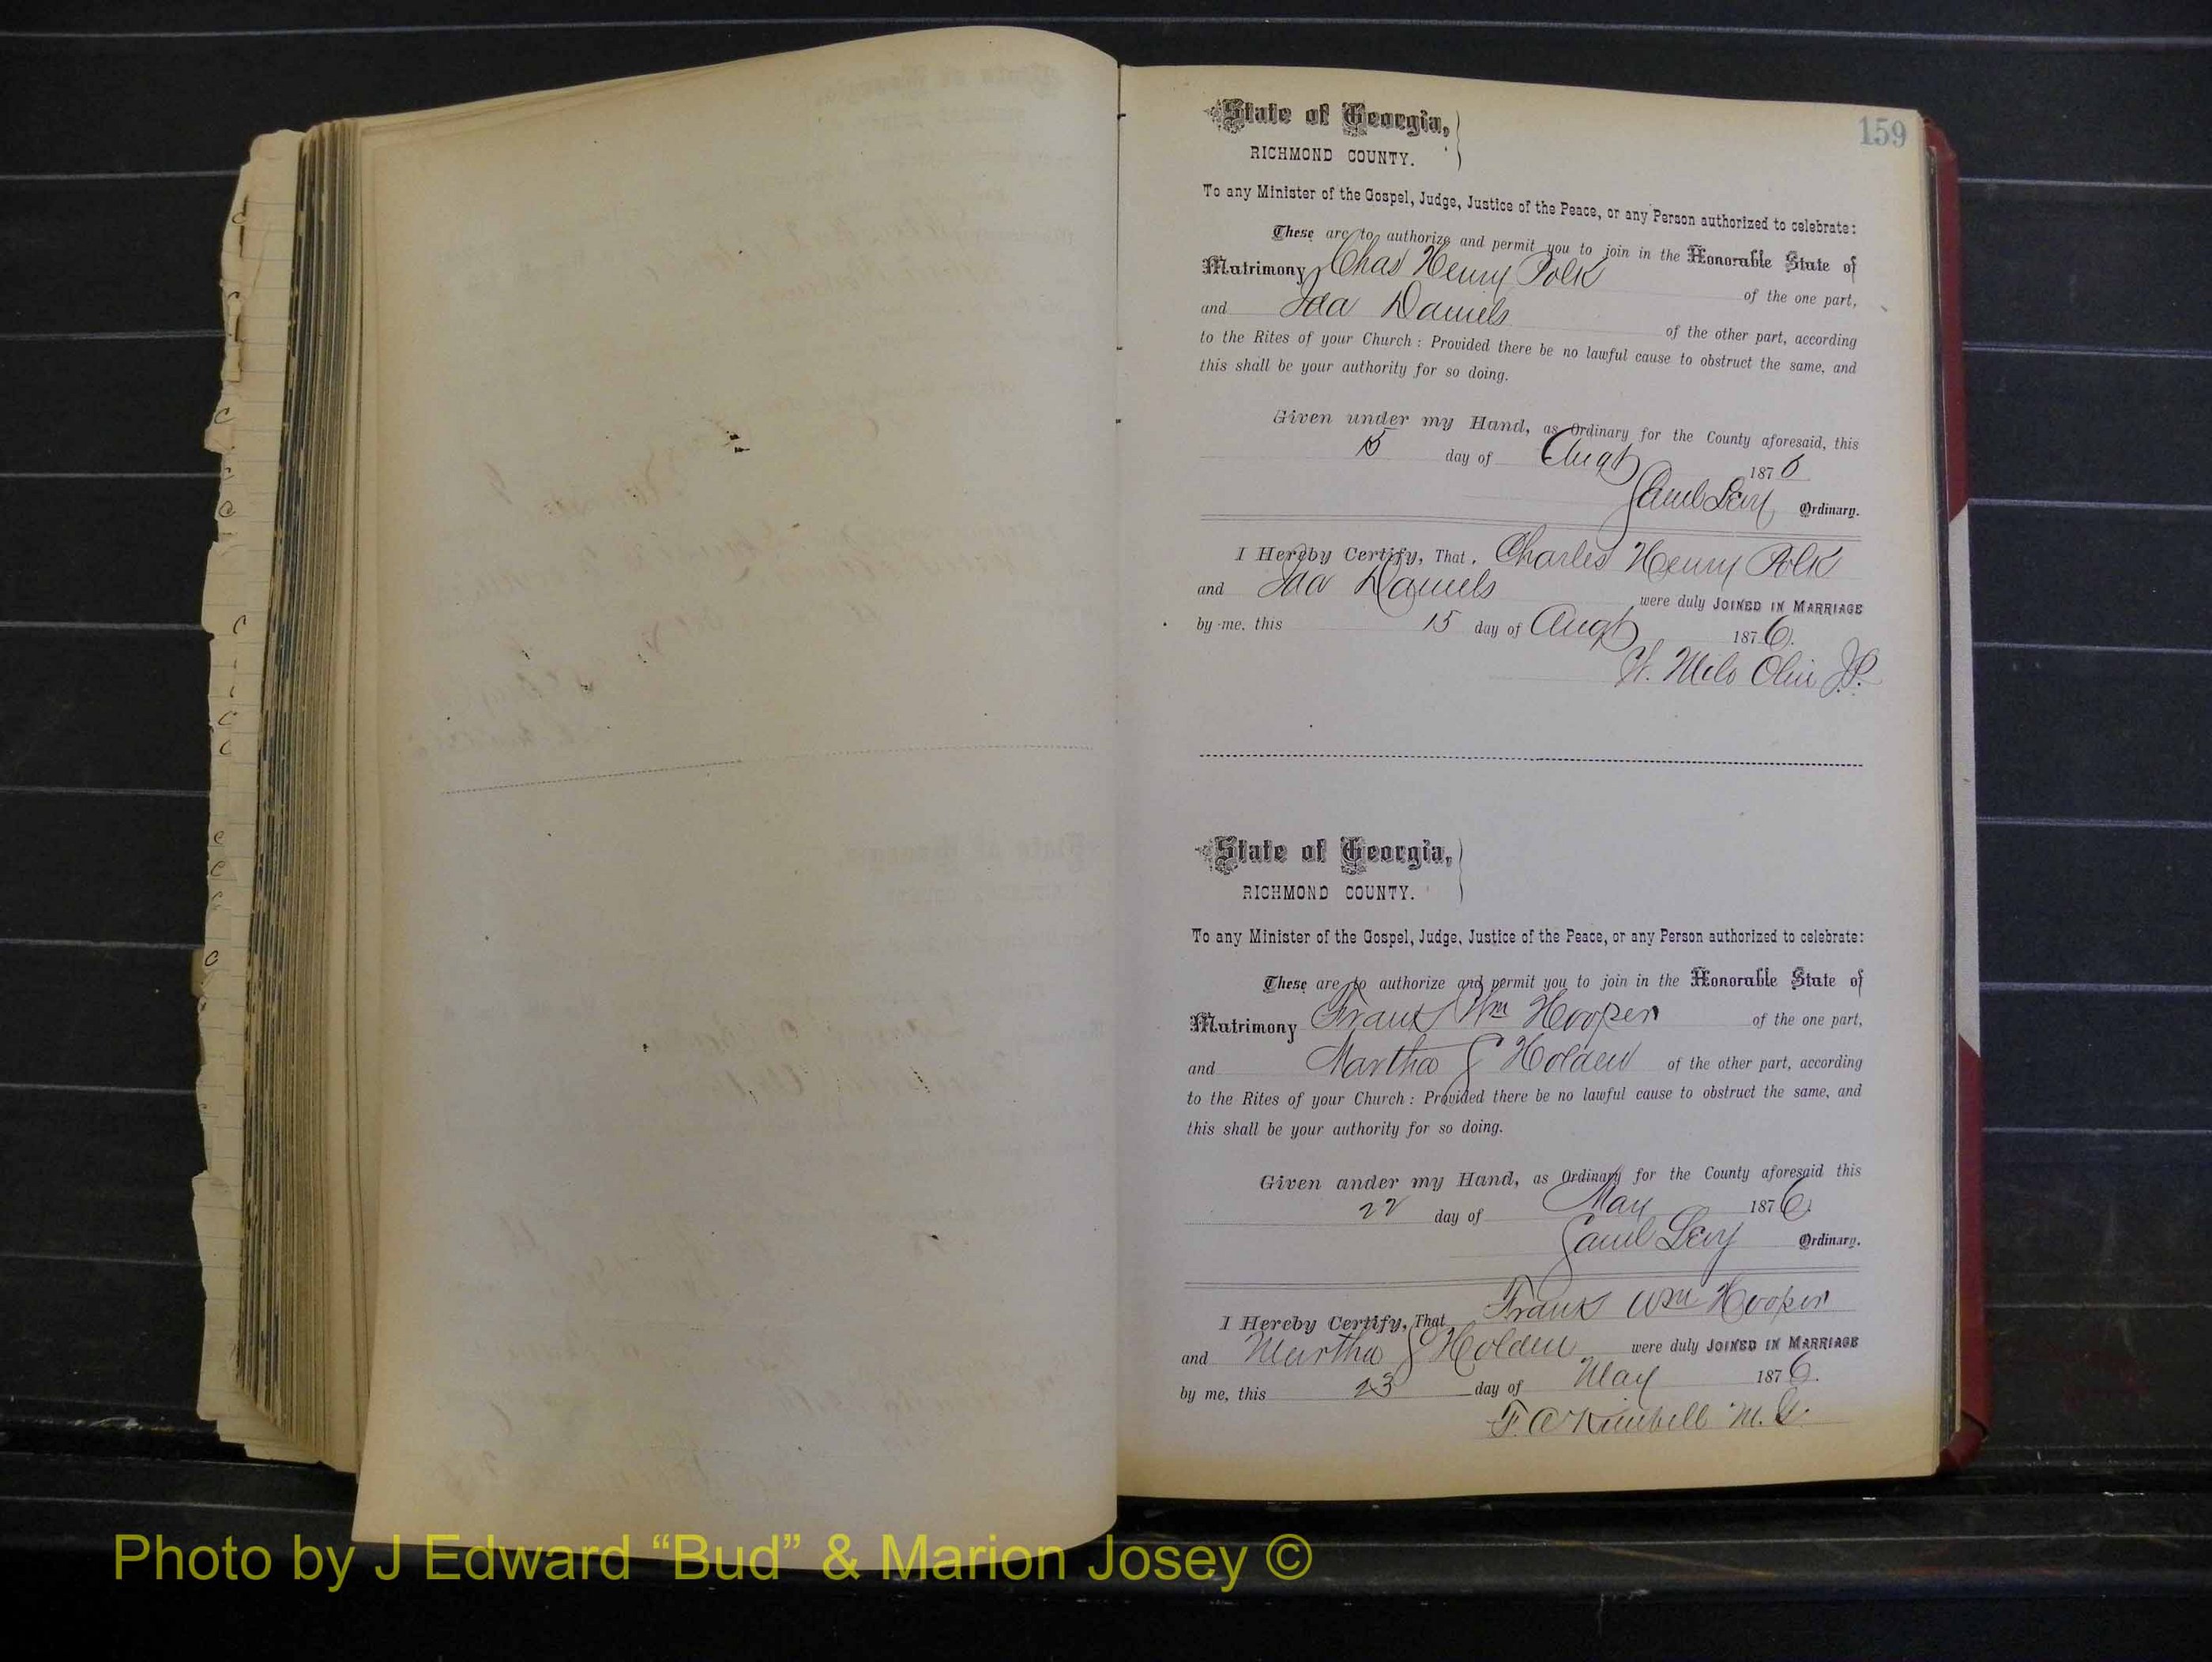 159
State of Georgia,
RICHMOND COUNTY.
To any Minister of the Gospel, Judge, Justice of the Peace, or any Person authorized to celebrate:
These are to authorize and permit you to join in the Honorable State of
Matrimony Chas Henry Polk of the one part,
and Ida Daniels of the other part, according
to the Rites of your Church: Provided there be no lawful cause to obstruct the same, and
this shall be your authority for so doing.
Given under my Hand, as Ordinary for the County aforesaid, this
15 day of Augt 1876
Saml Levy Ordinary.
I Hereby Certify, That Charles Henry Polk
and Ida Daniels were duly JOINED IN MARRIAGE
by me, this 15 day of Augt 1876.
W. Milo Olin J.P.
State of Georgia,
RICHMOND COUNTY.
To any Minister of the Gospel, Judge, Justice of the Peace, or any Person authorized to celebrate:
These are to authorize and permit you to join in the Honorable State of
Matrimony Frank Wm Hooper of the one part,
and Martha J Holden of the other part, according
to the Rites of your Church: Provided there be no lawful cause to obstruct the same, and
this shall be your authority for so doing.
Given under my Hand, as Ordinary for the County aforesaid this
22 day of May 1876
Saml Levy Ordinary.
I Hereby Certify, That Frank Wm Hooper
and Martha J Holden were duly JOINED IN MARRIAGE
by me, this 23 day of May 1876.
F. A Kimbell M. G.
Photo by J Edward “Bud” & Marion Josey ©